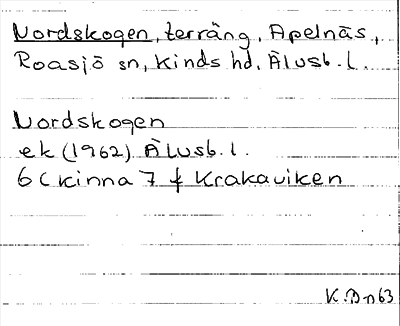 Nordskogen, terräng, Apelnäs,
Roasjö sn, Kinds hd, Älvsb. l.
Nordskogen
ek (1962) Älvsb. l.
6 C Kinna 7 f Krakaviken
K. Bn 63